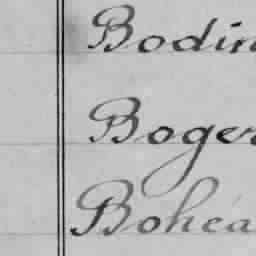 Bodin
Boger
Bohea